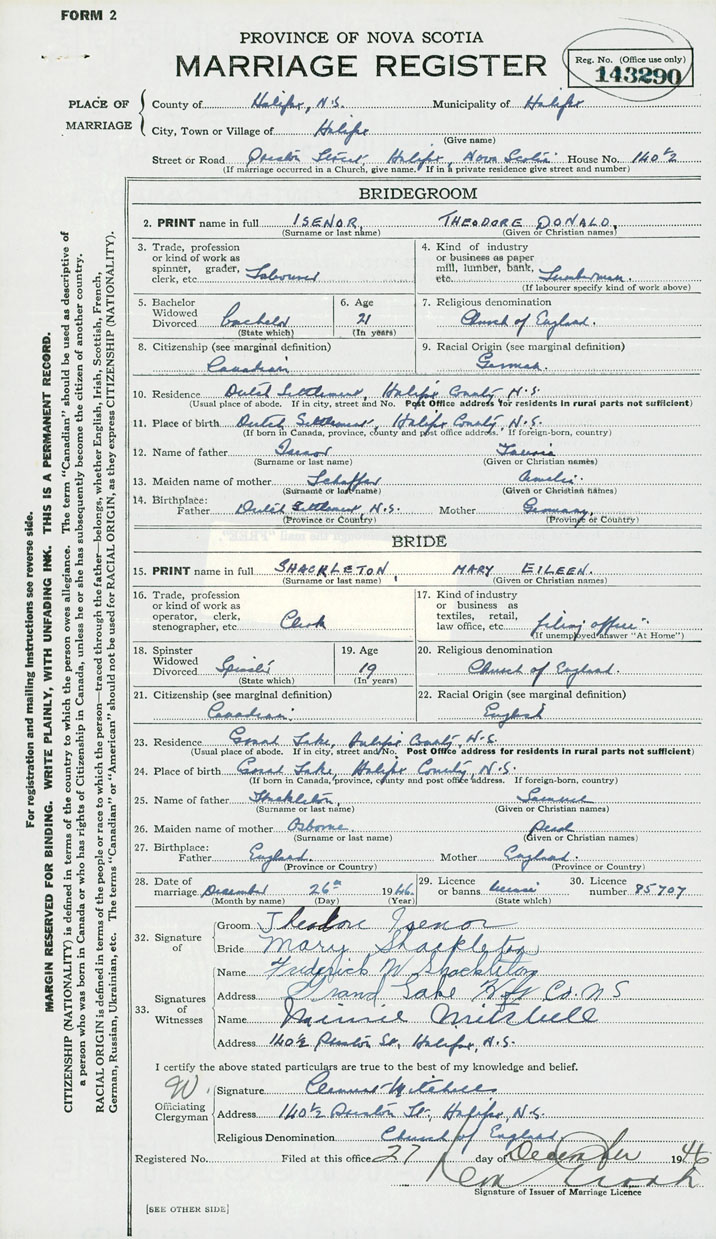 FORM 2
PROVINCE OF NOVA SCOTIA
MARRIAGE REGISTER
Reg. No. (Office use only)
143290
PLACE OF MARRIAGE
County of Halifax, N.S. Municipality of Halifax
City, Town or Village of Halifax
(Give name)
Street or Road Preston Street Halifax, Nova Scotia House No. 140½
(If marriage occurred in a Church, give name. If in a private residence give street and number)
BRIDEGROOM
2. PRINT name in full ISENOR, THEODORE DONALD,
(Surname or last name) (Given or Christian names)
3. Trade, profession or kind of work as spinner, grader, clerk, etc. Labourer
4. Kind of industry or business as paper mill, lumber, bank, etc. Lumberman.
(If labourer specify kind of work above)
5. Bachelor Widowed Divorced Bachelor
(State which)
6. Age 21
(In years)
7. Religious denomination Church of England.
8. Citizenship (see marginal definition) Canadian
9. Racial Origin (see marginal definition) German.
10. Residence Dutch Settlement, Halifax County, N.S.
(Usual place of abode. If in city, street and No. Post Office address for residents in rural parts not sufficient)
11. Place of birth Dutch Settlement, Halifax County, N.S.
(If born in Canada, province, county and post office address. If foreign-born, country)
12. Name of father Isenor
(Surname or last name) (Given or Christian names)
13. Maiden name of mother Schaffer Amelia
(Surname or last name) (Given or Christian names)
14. Birthplace: Father Dutch Settlement, N.S. Mother Germany,
(Province or Country) (Province or Country)
BRIDE
15. PRINT name in full SHACKLETON, MARY EILEEN.
(Surname or last name) (Given or Christian names)
16. Trade, profession or kind of work as operator, clerk, stenographer, etc. Clerk
17. Kind of industry or business as textiles, retail, law office, etc. filing office
(If unemployed answer "At Home")
18. Spinster Widowed Divorced Spinster
(State which)
19. Age 19
(In years)
20. Religious denomination Church of England.
21. Citizenship (see marginal definition) Canadian.
22. Racial Origin (see marginal definition) English
23. Residence Grand Lake, Halifax County, N.S.
(Usual place of abode. If in city, street and No. Post Office address for residents in rural parts not sufficient)
24. Place of birth Grand Lake, Halifax County, N.S.
(If born in Canada, province, county and post office address. If foreign-born, country)
25. Name of father Shackleton, Samuel
(Surname or last name) (Given or Christian names)
26. Maiden name of mother Osborne. Pearl
(Surname or last name) (Given or Christian names)
27. Birthplace: Father England. Mother England.
(Province or Country) (Province or Country)
28. Date of marriage December 26th 1946.
(Month by name) (Day) (Year)
29. Licence or banns license
(State which)
30. Licence number 85707
32. Signature of
Groom Theodore Isenor
Bride Mary Shackleton
33. Signatures of Witnesses
Name Frederick W Shackleton
Address Grand Lake Hfx Co. N S
Name Minnie Mitchell
Address 140½ Preston St., Halifax, N.S.
I certify the above stated particulars are true to the best of my knowledge and belief.
W.
Officiating Clergyman
Signature Clement Mitchell
Address 140½ Preston St., Halifax, N.S.
Religious Denomination Church of England
Registered No. Filed at this office 27 day of December 1946
Signature of Issuer of Marriage Licence
[SEE OTHER SIDE]
For registration and mailing instructions see reverse side.
MARGIN RESERVED FOR BINDING. WRITE PLAINLY, WITH UNFADING INK. THIS IS A PERMANENT RECORD.
CITIZENSHIP (NATIONALITY) is defined in terms of the country to which the person owes allegiance. The term "Canadian" should be used as descriptive of
a person who was born in Canada or who has rights of Citizenship in Canada, unless he or she has subsequently become the citizen of another country.
RACIAL ORIGIN is defined in terms of the people or race to which the person—traced through the father—belongs, whether English, Irish, Scottish, French,
German, Russian, Ukrainian, etc. The terms "Canadian" or "American" should not be used for RACIAL ORIGIN, as they express CITIZENSHIP (NATIONALITY).